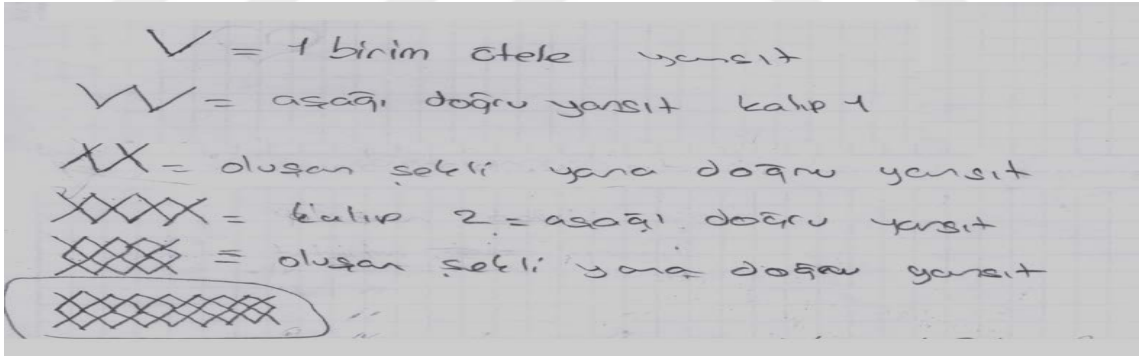 = 1 birim ötele yansıt
= aşağı doğru yansıt kalıp 1
= oluşan şekli yana doğru yansıt
= kalıp 2 = aşağı doğru yansıt
= oluşan şekli yana doğru yansıt